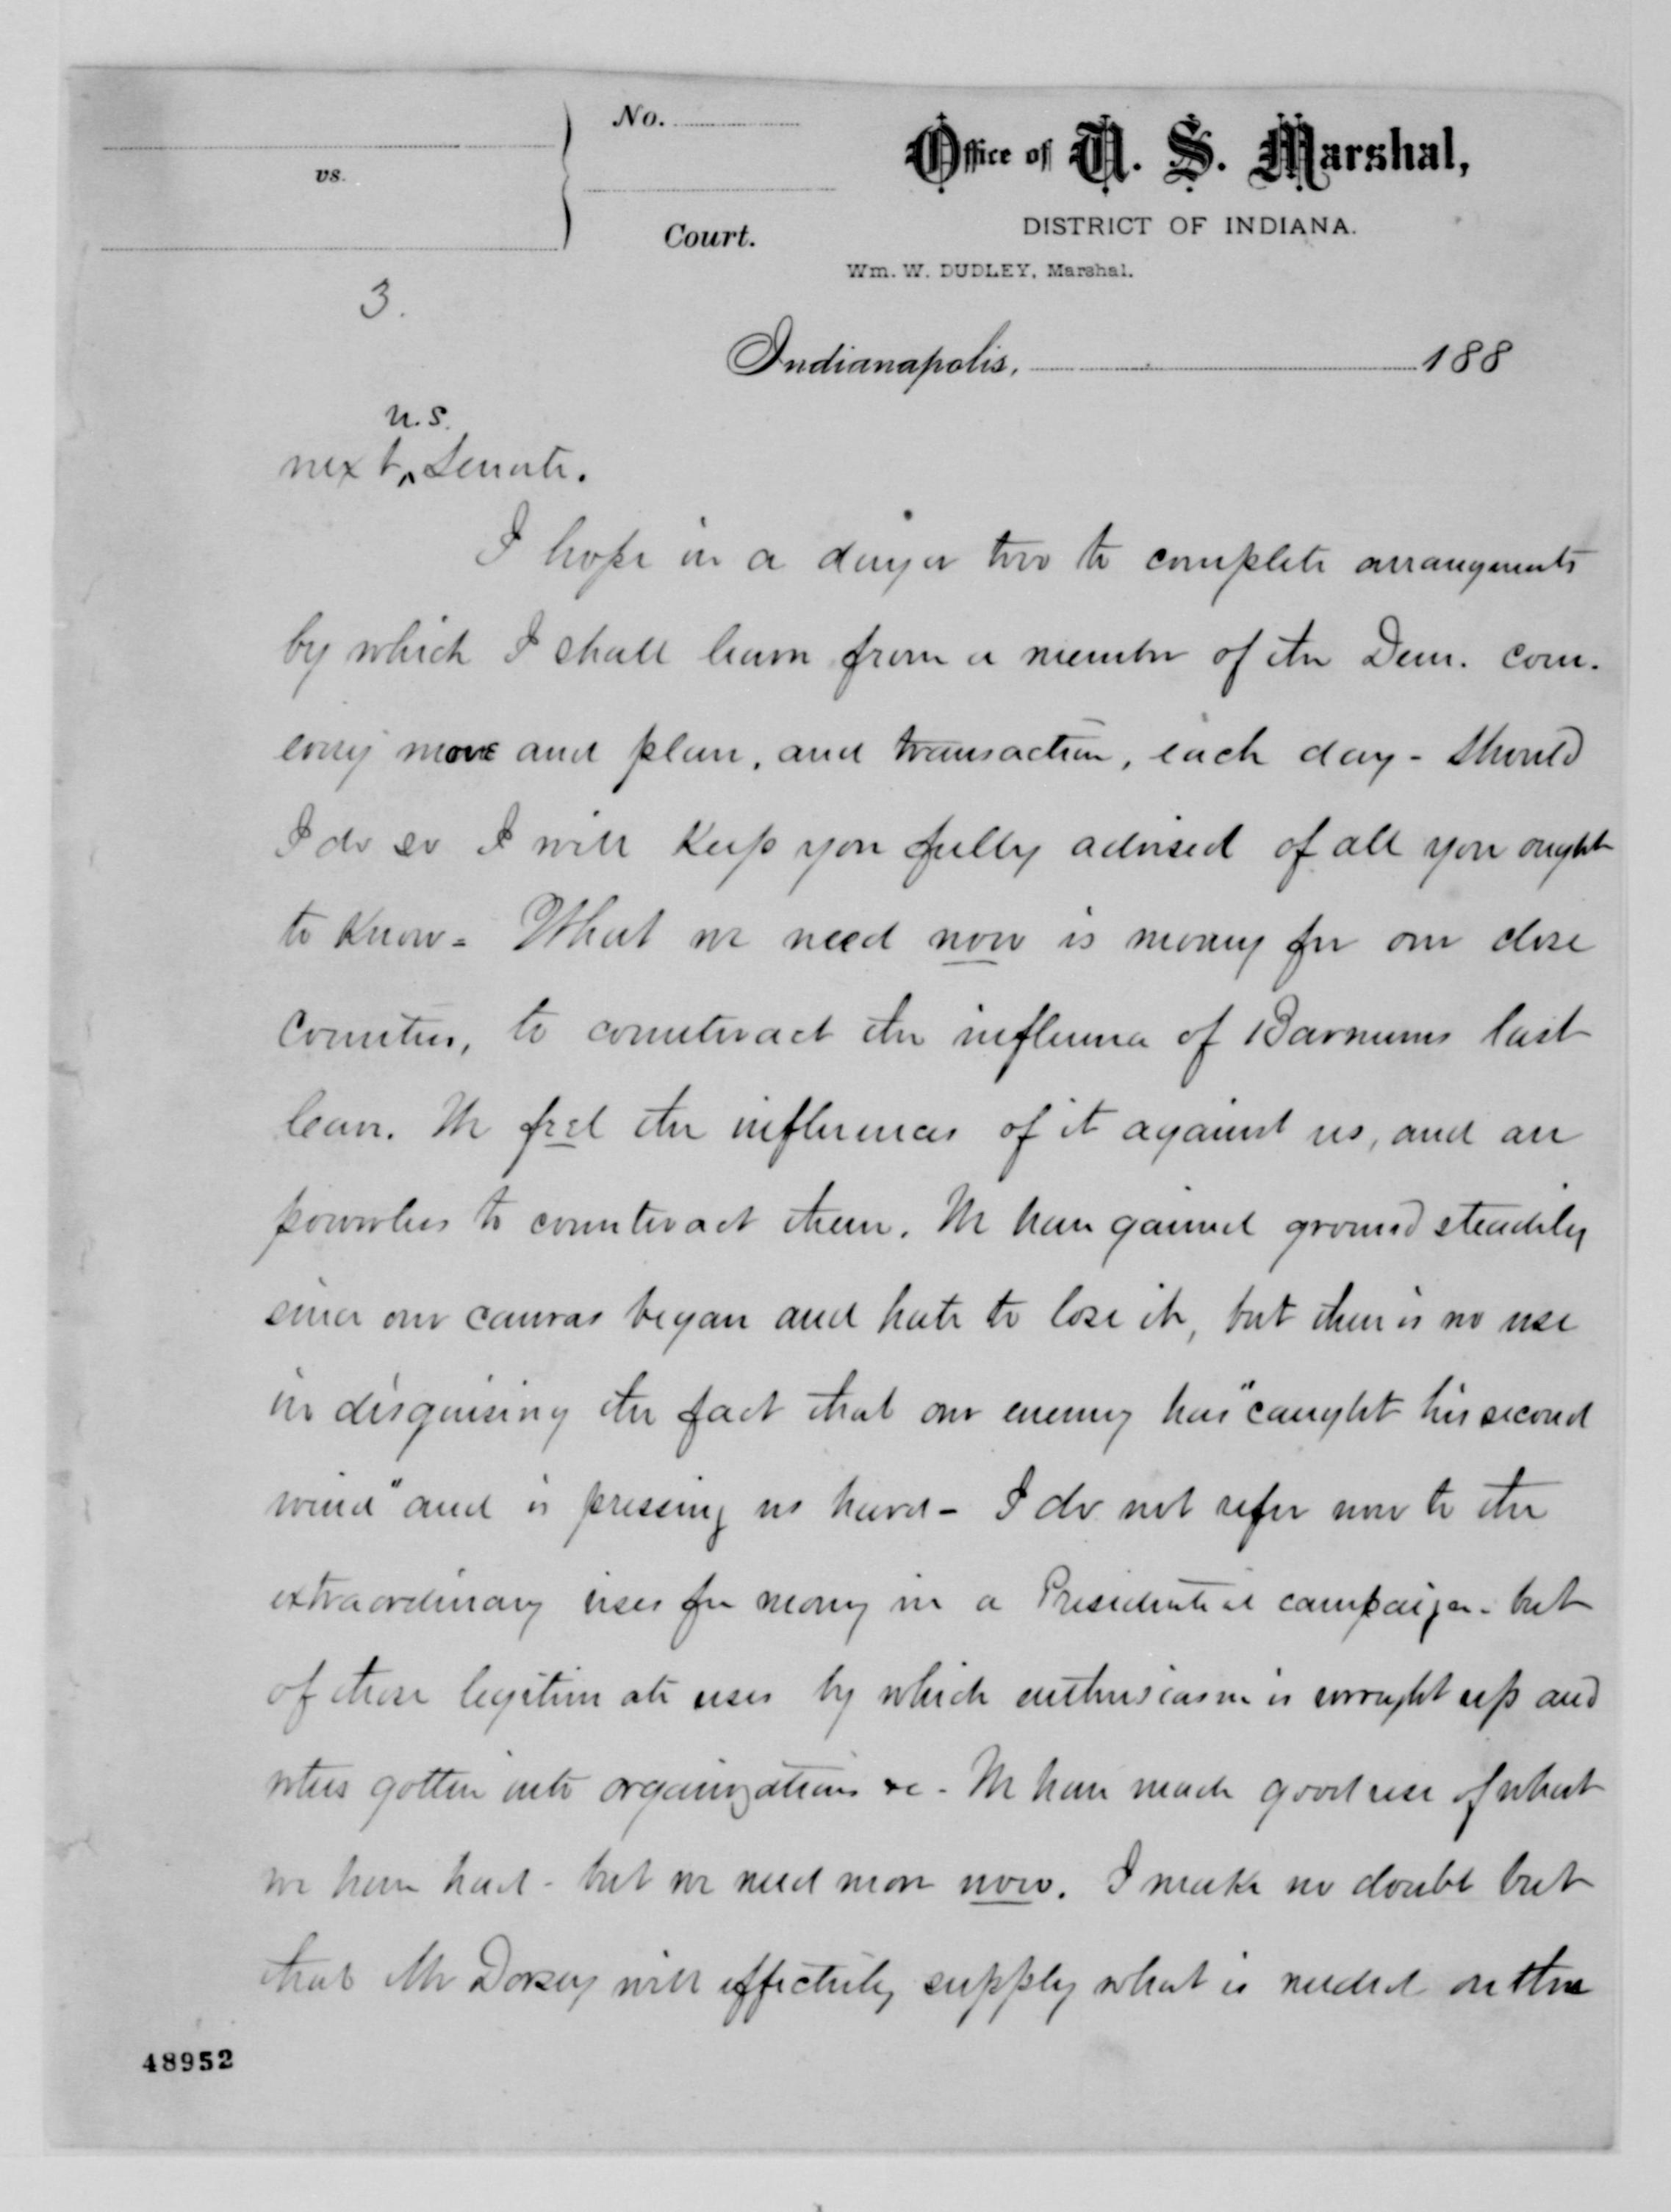 No.
vs.
Court.
Office of U. S. Marshal,
DISTRICT OF INDIANA.
Wm. W. DUDLEY, Marshal.
3.
Indianapolis, 188
U.S.
next ^ Senate.
I hope in a day or two to complete arrangements
by which I shall learn from a member of the Dem. com.
every move and plan, and transaction, each day - Should
I do so I will keep you fully advised of all you ought
to know - What we need now is money for our close
Counties, to counteract the influence of Barnums last
loan. We feel the influences of it against us, and are
powerless to counteract them. We have gained ground steadily
since our canvas began and hate to lose it, but there is no use
in disguising the fact that our enemy has "caught his second
wind" and is pressing us hard - I do not refer now to the
extraordinary uses for money in a Presidential campaign - but
of those legitimate uses by which enthusiasm is wrought up and
votes gotten into organizations &c - We have made good use of what
we have had - but we need more now. I make no doubt but
that Mr Dorsey will effectively supply what is needed on the
48952